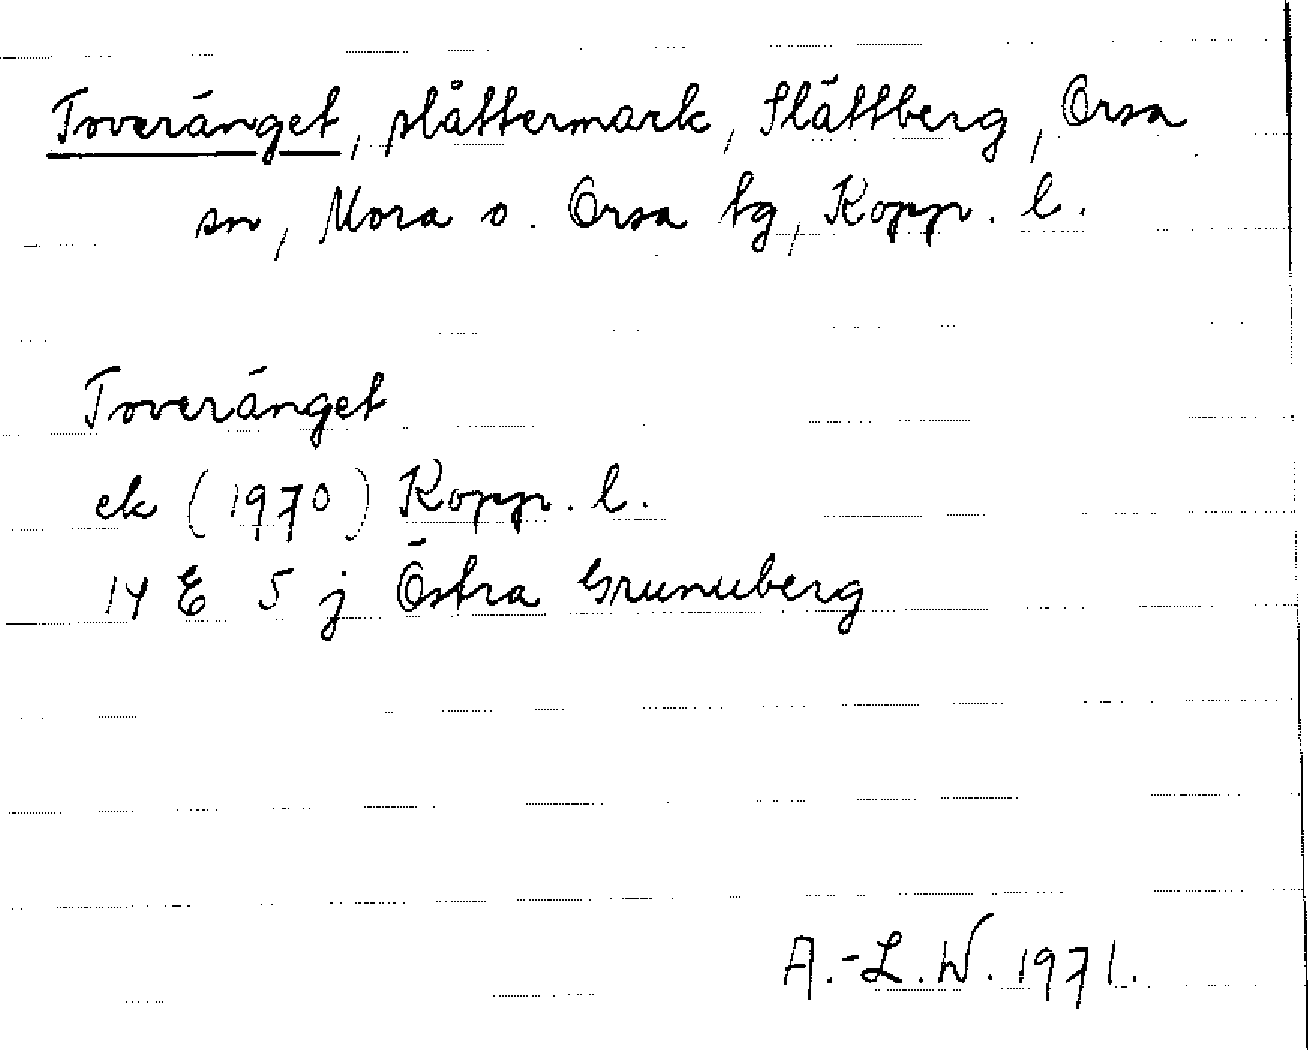 Toveränget, slåttermark, Slättberg, Orsa
sn, Mora o. Orsa tg, Kopp. l.
Toveränget
ek (1970) Kopp. l.
14 E 5 j Östra Grunuberg
A.-L.W. 1971.